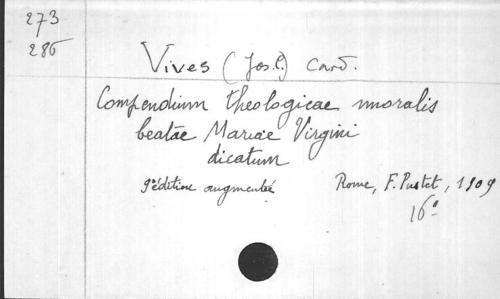 273
286
Vives (Jos. C.) Card.
Compendium theologicae moralis
beatae Mariae Virgini
dicatum
9e édition augmentée Rome, F. Pustet, 1909
16°